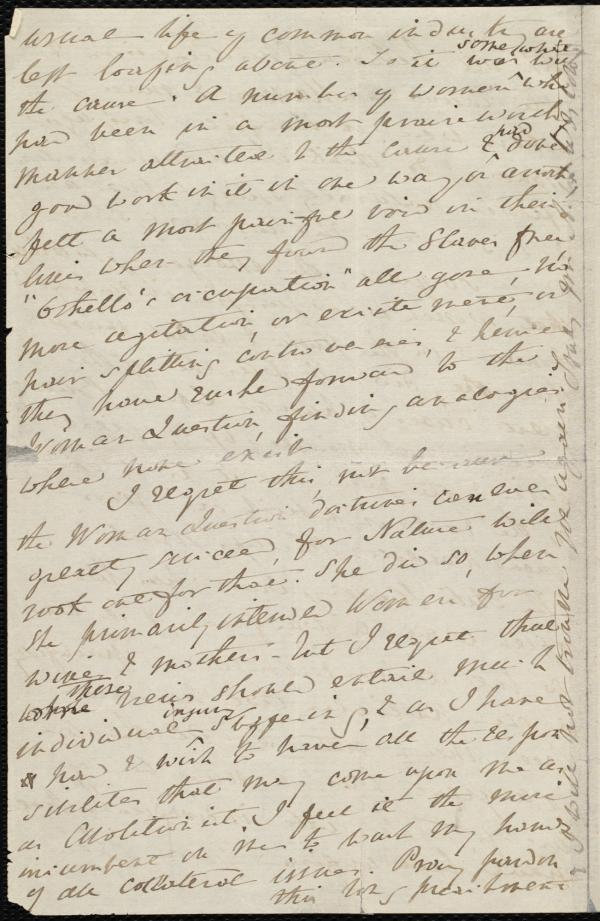 usual life of common industry are
left loafing about. So it was with somewhat
the cause. A number of women who
had been in a most praiseworthy
manner attracted to the cause & had done
good work in it in one way or another
felt a most painful void in their
lives when they found the Slaves free
"Othello's occupation" all gone, no
more agitation, or excitement, or
hair splitting controversies, & hence
they have rushed forward to the
Woman Question, finding analogies
where none exist
I regret this, not because
the Woman Question doctrines can ever
greatly succeed, for Nature will
look out for that. She did so, when
She primarily intended Women for
wives & mothers - but I regret that
these views should entail much
individual injury suffering, & as I have
had & wish to have all the respon
sibilities that may come upon me as
an Abolitionist I feel it the more
incumbent on me to wash my hands
of all collateral issues. Pray pardon
this long
I will not trouble you again